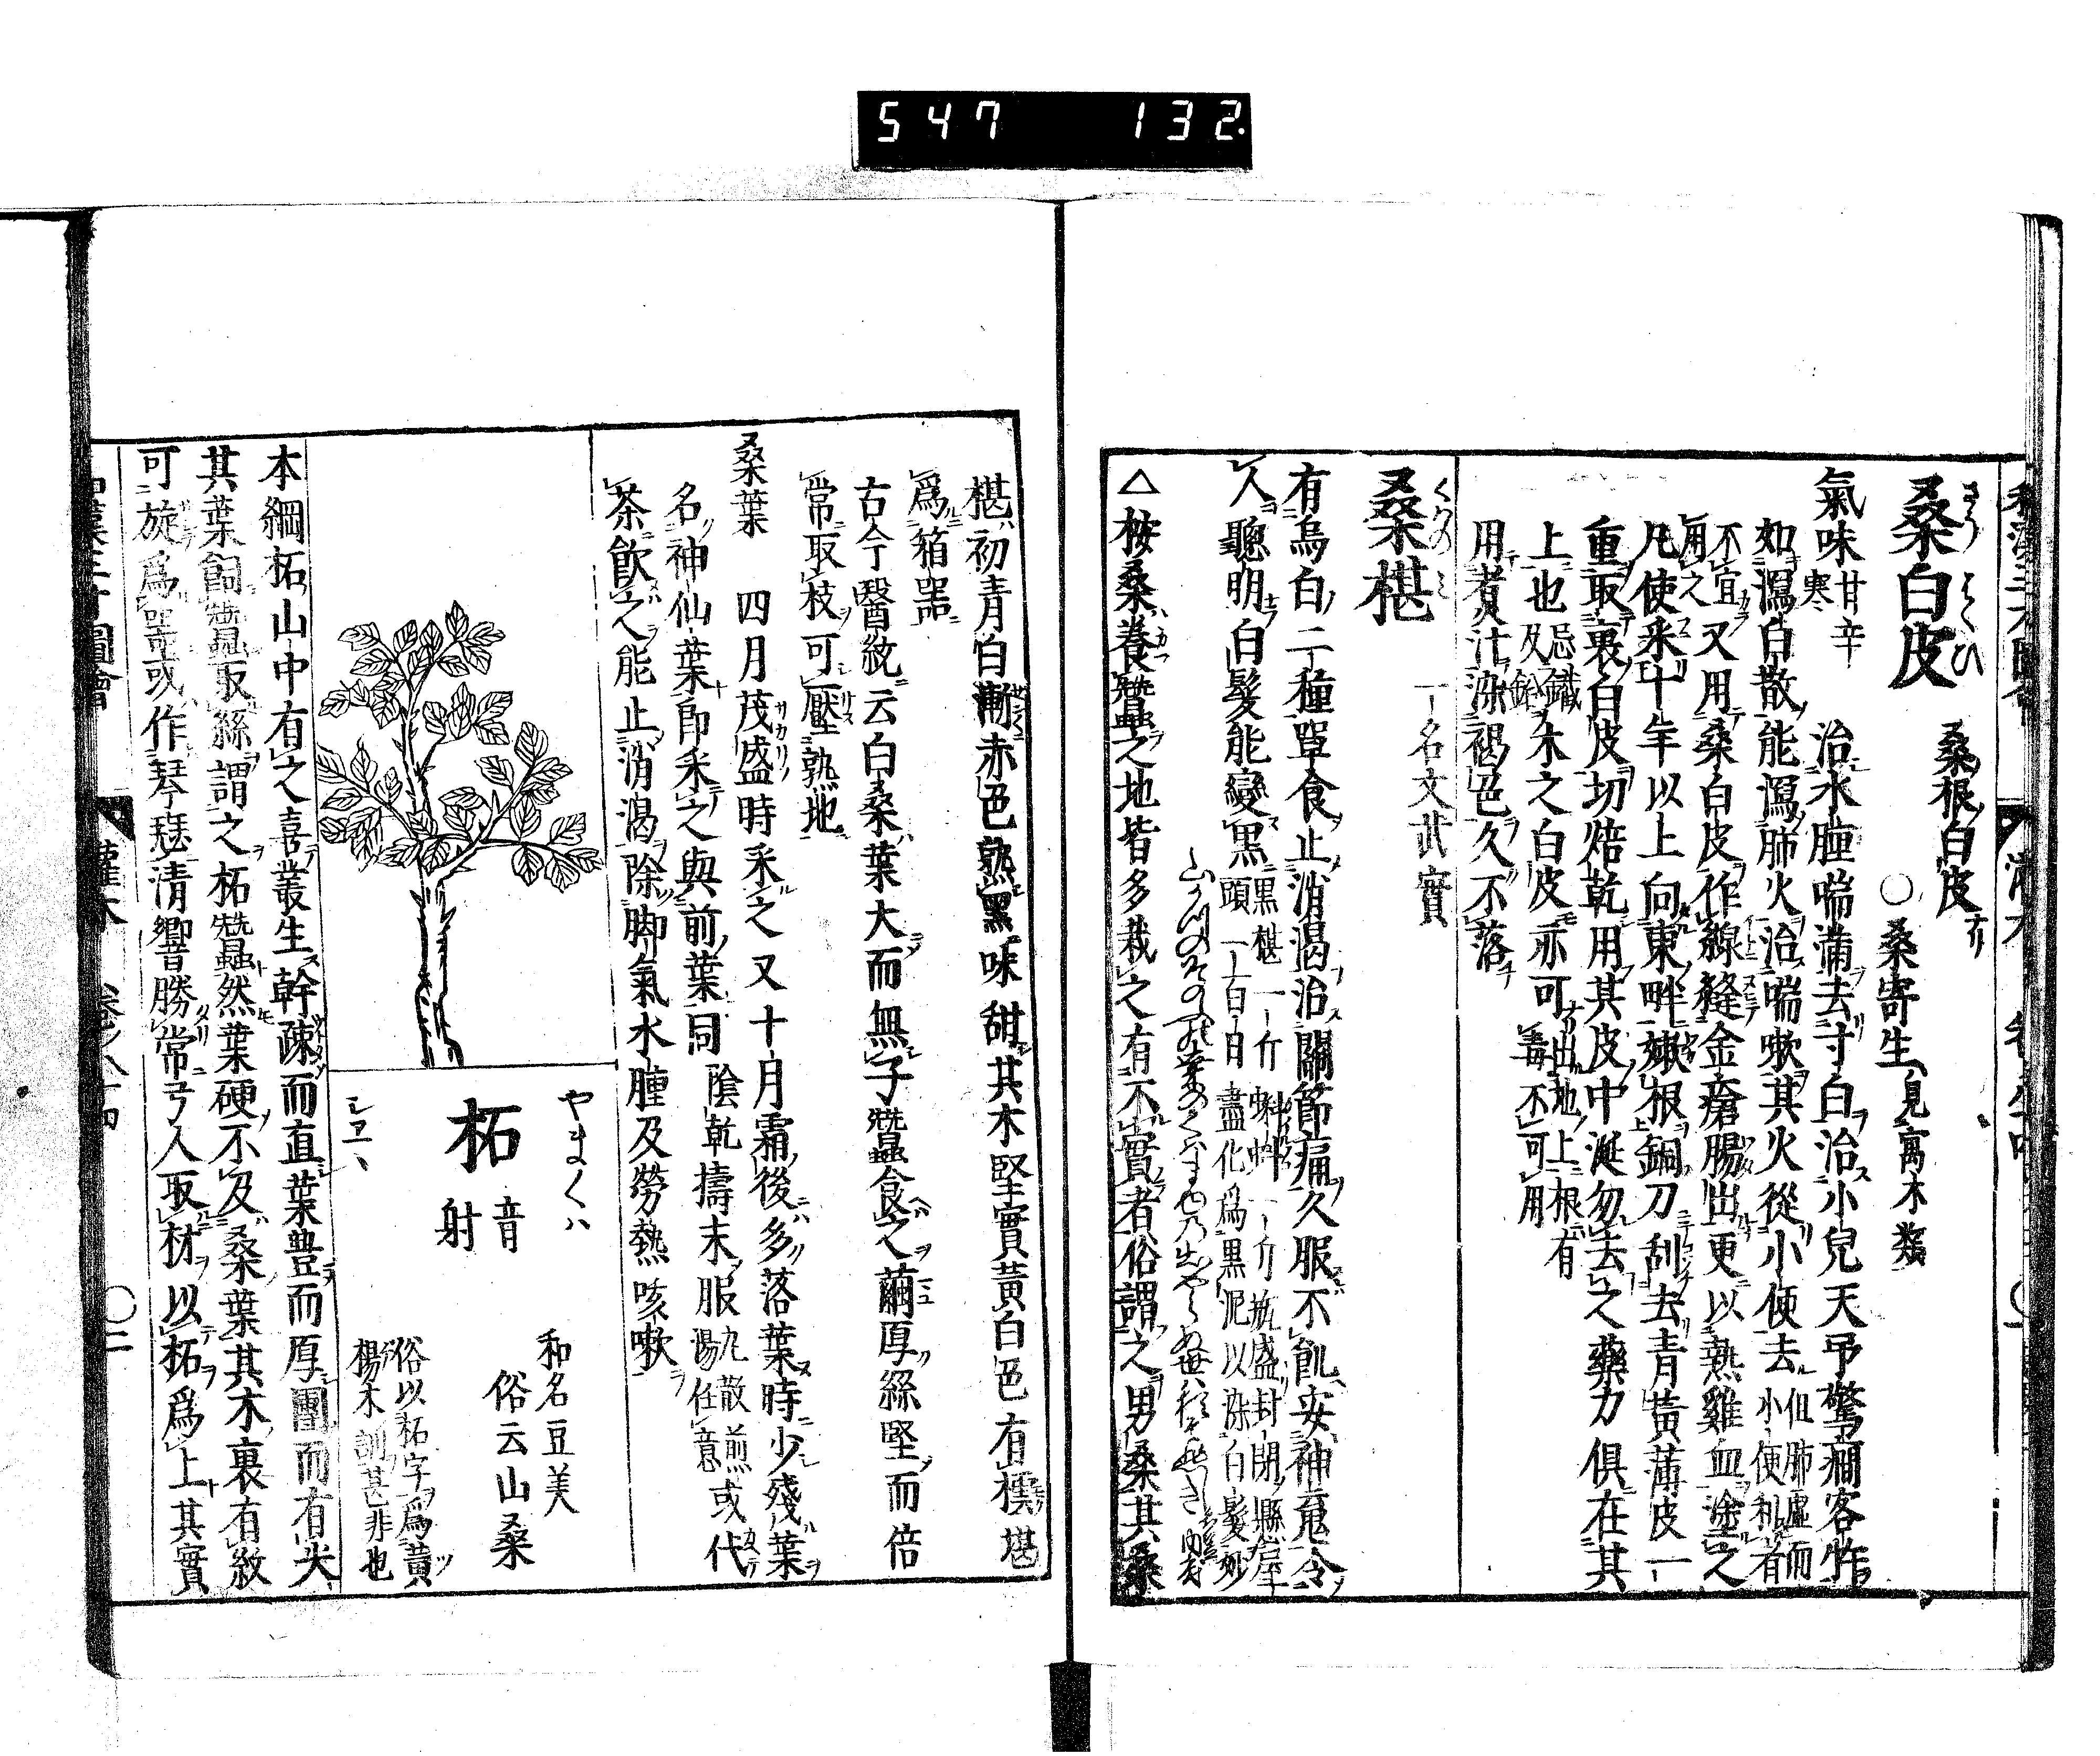 547 132.
桑白皮 桑根白皮
さう はくひ
○桑寄生見寓木類
氣味 甘辛寒 治水腫喘滿去寸白治小兒天弔驚癇客忤
如瀉白散能瀉肺火治喘嗽其火從小便去 但肺虛而小便利者
不宜用之 又用桑白皮作線縫金瘡腸出更以熱雞血塗之
凡使采十年以上向東畔嫩根銅刀刮去青黃薄皮一
重取裏白皮切焙乾用其皮中涎勿去之藥力俱在其
上也 忌鐵及鉛 木之白皮亦可 出地上根有毒不可用
用煮汁染褐色久不落
桑椹 一名文武實
くわのミ
有烏白二種單食止消渴治關節痛久服不飢安神䰟令
人聰明白髮能變黑 黑椹一斤蝌蚪一斤瓶盛封閉懸屋頭一百日盡化爲黑泥以染白髮妙
△桉桑養蠶之地皆多栽之有不實者俗謂之男桑其桑
椹初青白漸赤色熟黑味甜其木堅實黃白色有襦堪
爲箱噐
古今醫統云白桑葉大而無子蠶食之繭厚絲堅而倍
常取枝可壓熟地
桑葉 四月茂盛時采之又十月霜後多落葉時少殘葉
名神仙葉卽采之與前葉同陰乾擣末服 丸散煎湯任意 或代
茶飮之能止消渴除脚氣水腫及勞熱咳嗽
やまくハ
柘 音射
和名豆美
俗云山桑
俗以柘字爲黃楊木訓甚非也
本綱柘山中有之喜叢生幹疎而直葉豊而厚團而有尖
其葉飼蠶取絲謂之柘蠶然葉硬不及桑葉其木裏有紋
可旋爲噐或作琴瑟清響勝常弓人取材以柘爲上其實
灌木 卷ノ八十四 〇二